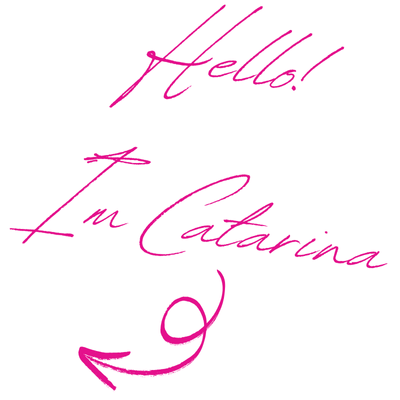 Hello!
Im Catarina